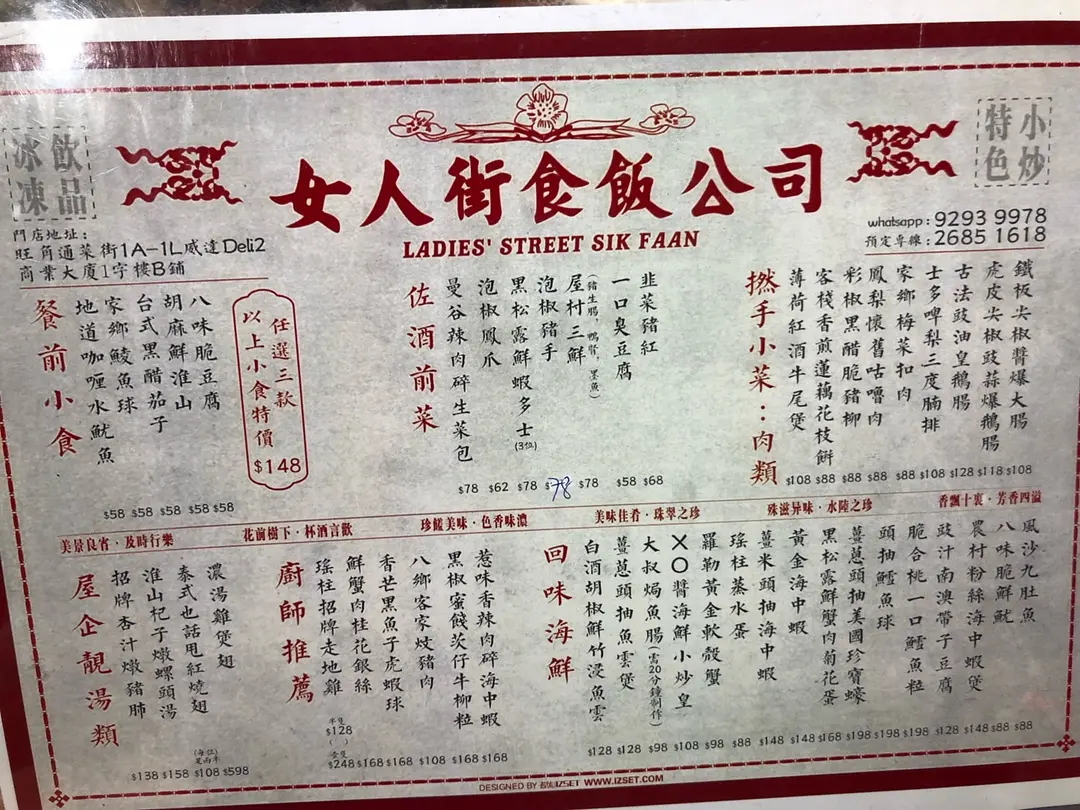 冰凍飲品
特色小炒
女人街食飯公司
LADIES' STREET SIK FAAN
門店地址:
旺角通菜街1A-1L威達Deli2
商業大廈1字樓B鋪
whatsapp : 9293 9978
預定專線 : 2685 1618
餐前小食
地道咖喱水魷魚
家鄉鯪魚球
台式黑醋茄子
胡麻鮮淮山
八味脆豆腐
$58 $58 $58 $58 $58
任選三款
以上小食特價
$148
佐酒前菜
曼谷辣肉碎生菜包
泡椒鳳爪
黑松露鮮蝦多士(3位)
泡椒豬手
屋村三鮮
(豬生腸、鴨腎、墨魚)
一口臭豆腐
韭菜豬紅
$78 $62 $78 78 $78 $58 $68
撚手小菜:肉類
薄荷紅酒牛尾煲
客棧香煎蓮藕花枝餅
彩椒黑醋脆豬柳
鳳梨懷舊咕嚕肉
家鄉梅菜扣肉
士多啤梨三度腩排
古法豉油皇鵝腸
虎皮尖椒豉蒜爆鵝腸
鐵板尖椒醬爆大腸
$108 $88 $88 $88 $88 $108 $128 $118 $108
美景良宵·及時行樂
花前樹下·杯酒言歡
珍饈美味·色香味濃
美味佳肴·珠翠之珍
殊滋异味·水陸之珍
香飄十裏·芳香四溢
屋企靚湯類
招牌杏汁燉豬肺
淮山杞子燉螺頭湯
泰式也話甩紅燒翅
濃湯雞煲翅
$138 $158 $108 $598
廚師推薦
瑤柱招牌走地雞
鮮蟹肉桂花銀絲
香芒黑魚子虎蝦球
八鄉客家炆豬肉
黑椒蜜餞茨仔牛柳粒
惹味香辣肉碎海中蝦
半隻
$128
全隻
$248 $168 $168 $108 $168 $168
回味海鮮
白酒胡椒鮮竹浸魚雲
薑蔥頭抽魚雲煲
大叔焗魚腸(需20分鐘制作)
XO醬海鮮小炒皇
羅勒黃金軟殼蟹
瑤柱蒸水蛋
薑米頭抽海中蝦
黃金海中蝦
黑松露鮮蟹肉菊花蛋
薑蔥頭抽美國珍寶蠔
頭抽鱈魚球
脆合桃一口鱈魚粒
豉汁南澳帶子豆腐
農村粉絲海中蝦煲
八味脆鮮魷
風沙九肚魚
$128 $128 $98 $108 $98 $88 $148 $148 $168 $198 $198 $198 $128 $148 $88 $88
WWW.IZSET.COM